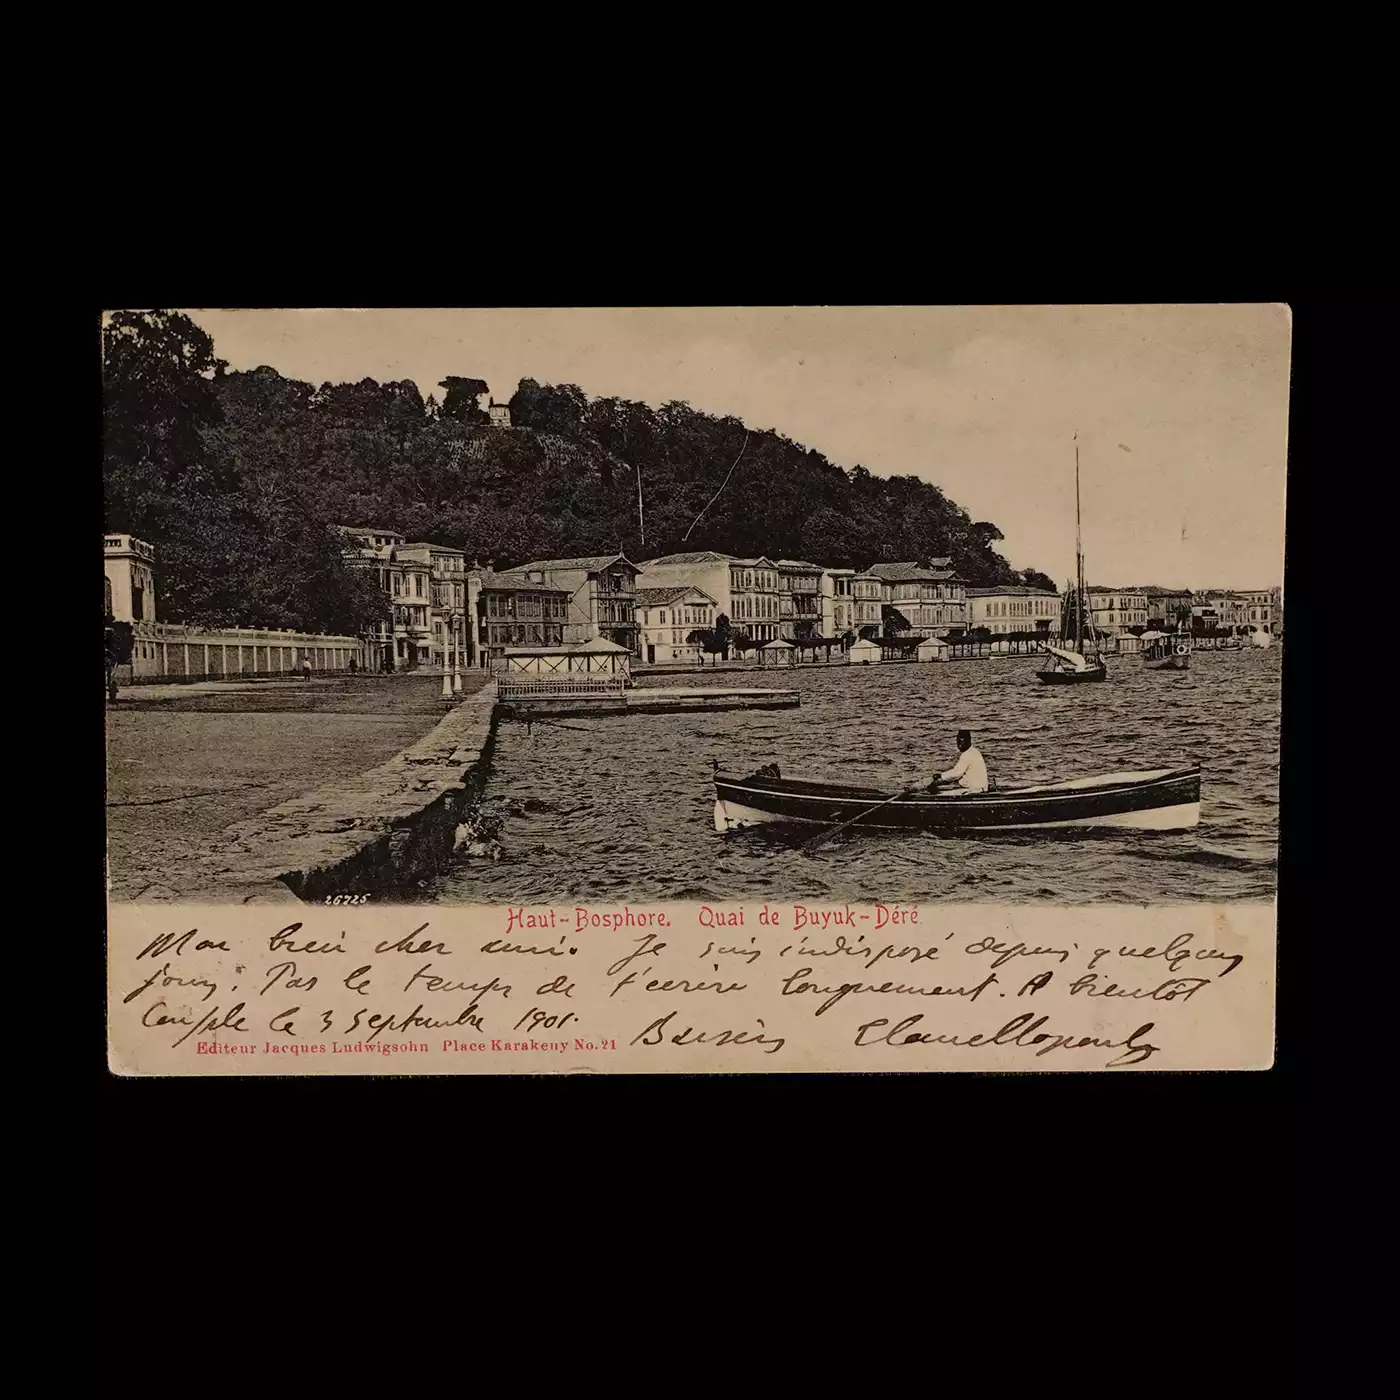 26725
Haut-Bosphore. Quai de Buyuk-Déré
Mon bien cher ami. Je suis indisposé depuis quelques
jours. Pas le temps de t'écrire longuement. A bientôt
le 3 Septembre 1901. Baisers
Editeur Jacques Ludwigsohn Place Karakeuy No. 21